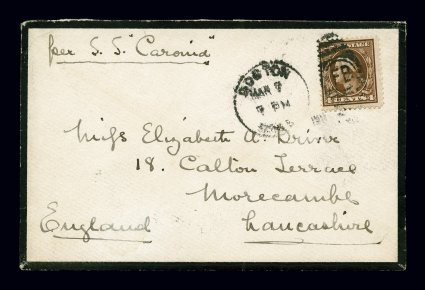 per S.S. "Caronia"
BOSTON
MAR 7
7 PM
CENTS
Miss Elizabeth A. Driver
18. Calton Terrace
Morecambe
England Lancashire